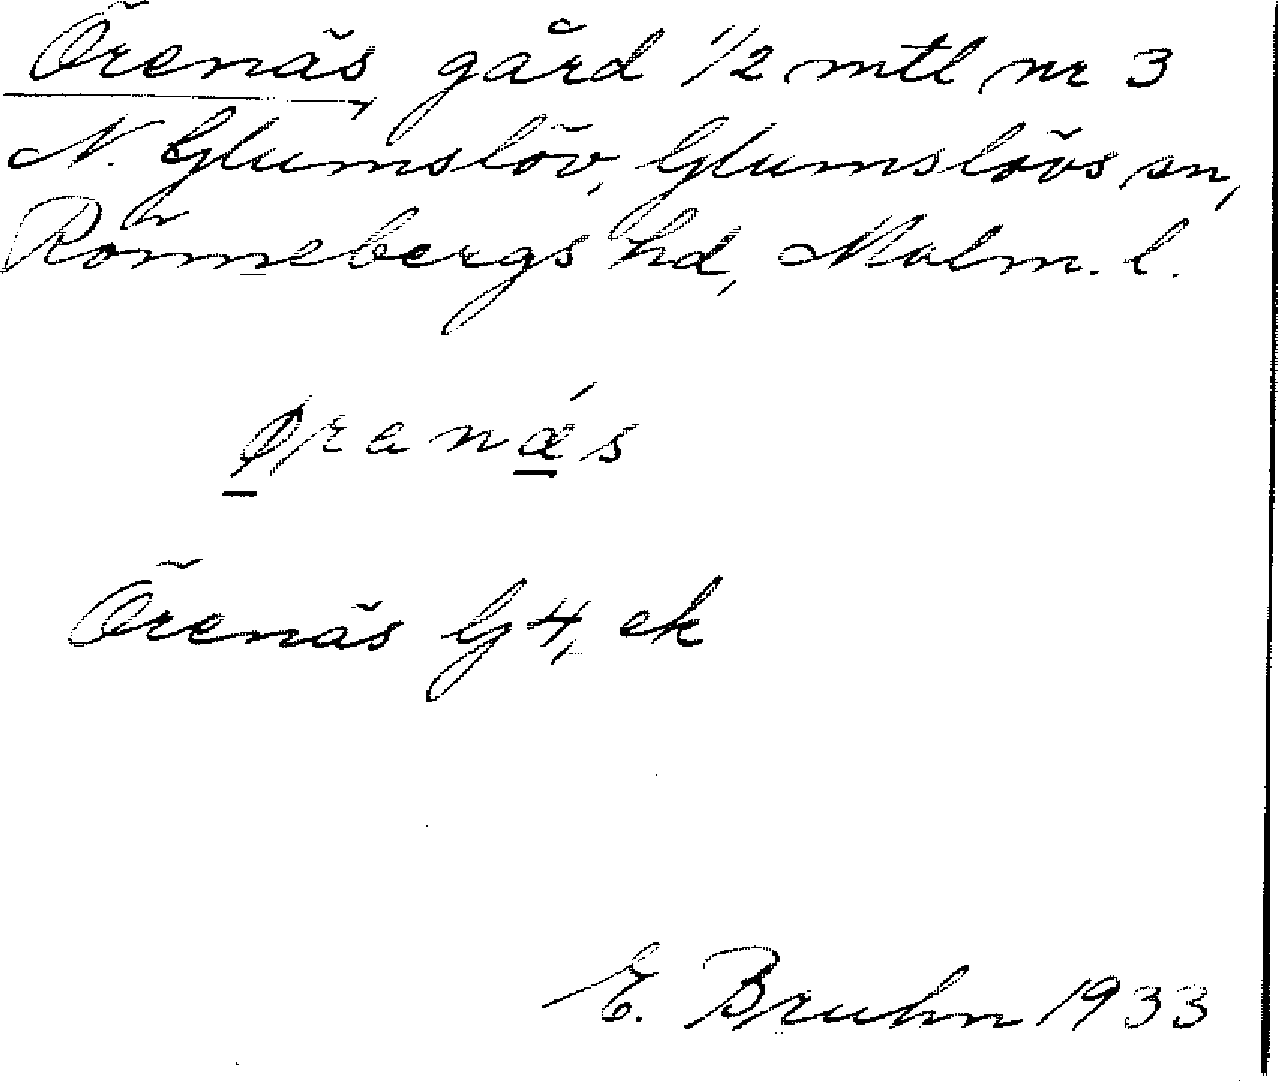 Örenäs, gård 1/2 mtl nr 3
N. Glumslöv, Glumslövs sn,
Rönnebergs hd, Malm. l.
øranǽs
Örenäs G4, ek
E. Bruhn 1933